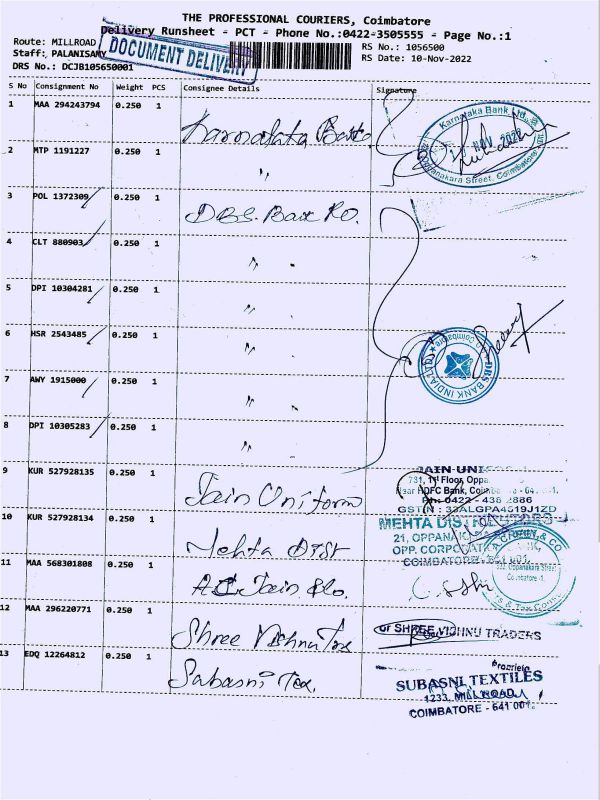 THE PROFESSIONAL COURIERS, Coimbatore
Delivery Runsheet - PCT - Phone No.:0422-3505555 - Page No.:1
Route: MILLROAD
RS No.: 1056500
Staff: PALANISAMY
RS Date: 10-Nov-2022
DRS No.: DCJB105650001
DOCUMENT DELIVERY
S No Consignment No Weight PCS Consignee Details Signature
1 MAA 294243794 0.250 1 Karnataka Bank
Karnataka Bank Ltd.
NOV 2022
Oppanakara Street, Coimbatore
2 MTP 1191227 0.250 1 "
3 POL 1372309 0.250 1 DBS. Bank RO.
4 CLT 880903 0.250 1 "
5 DPI 10304281 0.250 1 "
6 HSR 2543485 0.250 1 "
DBS BANK INDIA LTD
Coimbatore
7 AWY 1915000 0.250 1 "
8 DPI 10305283 0.250 1 "
9 KUR 527928135 0.250 1 Jain Uniform
JAIN UNI
731, 1st Floor, Oppa
Near HDFC Bank, Coimba - 641 001.
Ph: 0422 - 438 2886
GSTIN : 33ALGPA4519J1ZD
10 KUR 527928134 0.250 1 Mehta Dist
MEHTA DISTRIBUTORS
21, OPPANAK
OPP. CORPORATION
COIMBATORE - 641 001.
11 MAA 568301808 0.250 1 A.C. Jain & Co.
JAIN & CO
Oppanakara Street
Coimbatore -1.
& Tax Consul
12 MAA 296220771 0.250 1 Shree Vishnu Tex
or SHREE VISHNU TRADERS
Proprietor
13 EDQ 12264812 0.250 1 Subasni Tex.
SUBASNI TEXTILES
1233, MILL ROAD,
COIMBATORE - 641 001.